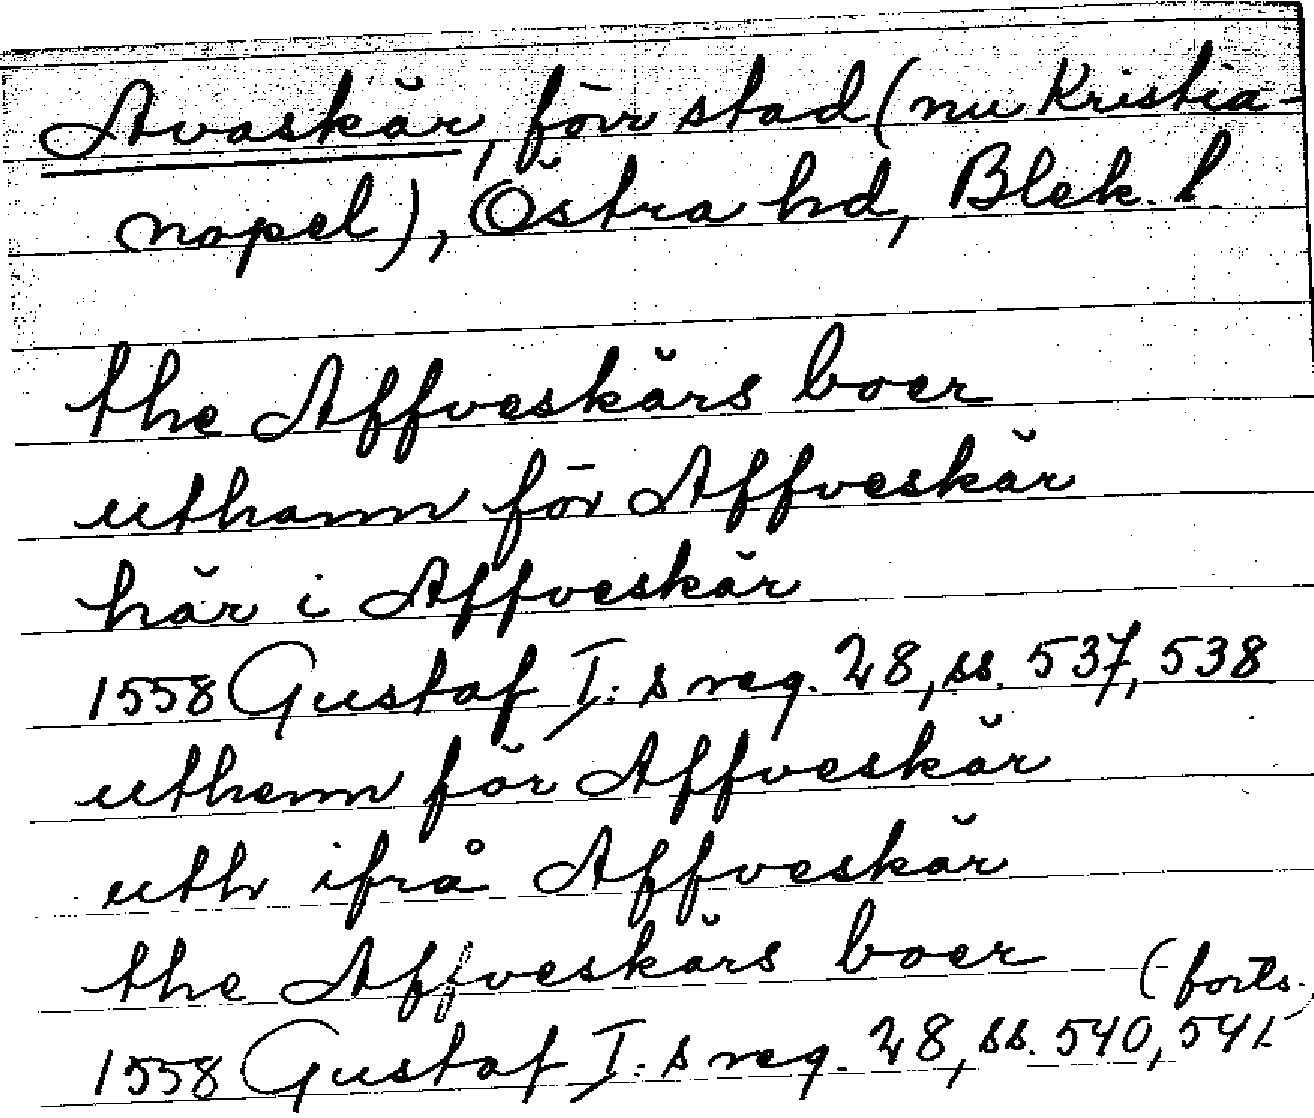 Avaskär, förr stad (nu Kristia-
nopel), Östra hd, Blek. l.
the Affveskärs boer
uthann för Affveskär
här i Affveskär
1558 Gustaf I:s reg. 28, ss. 537, 538
uthenn för Affveskär
uth ifrå Affveskär
the Affveskärs boer
(forts.)
1558 Gustaf I:s reg. 28, ss. 540, 541